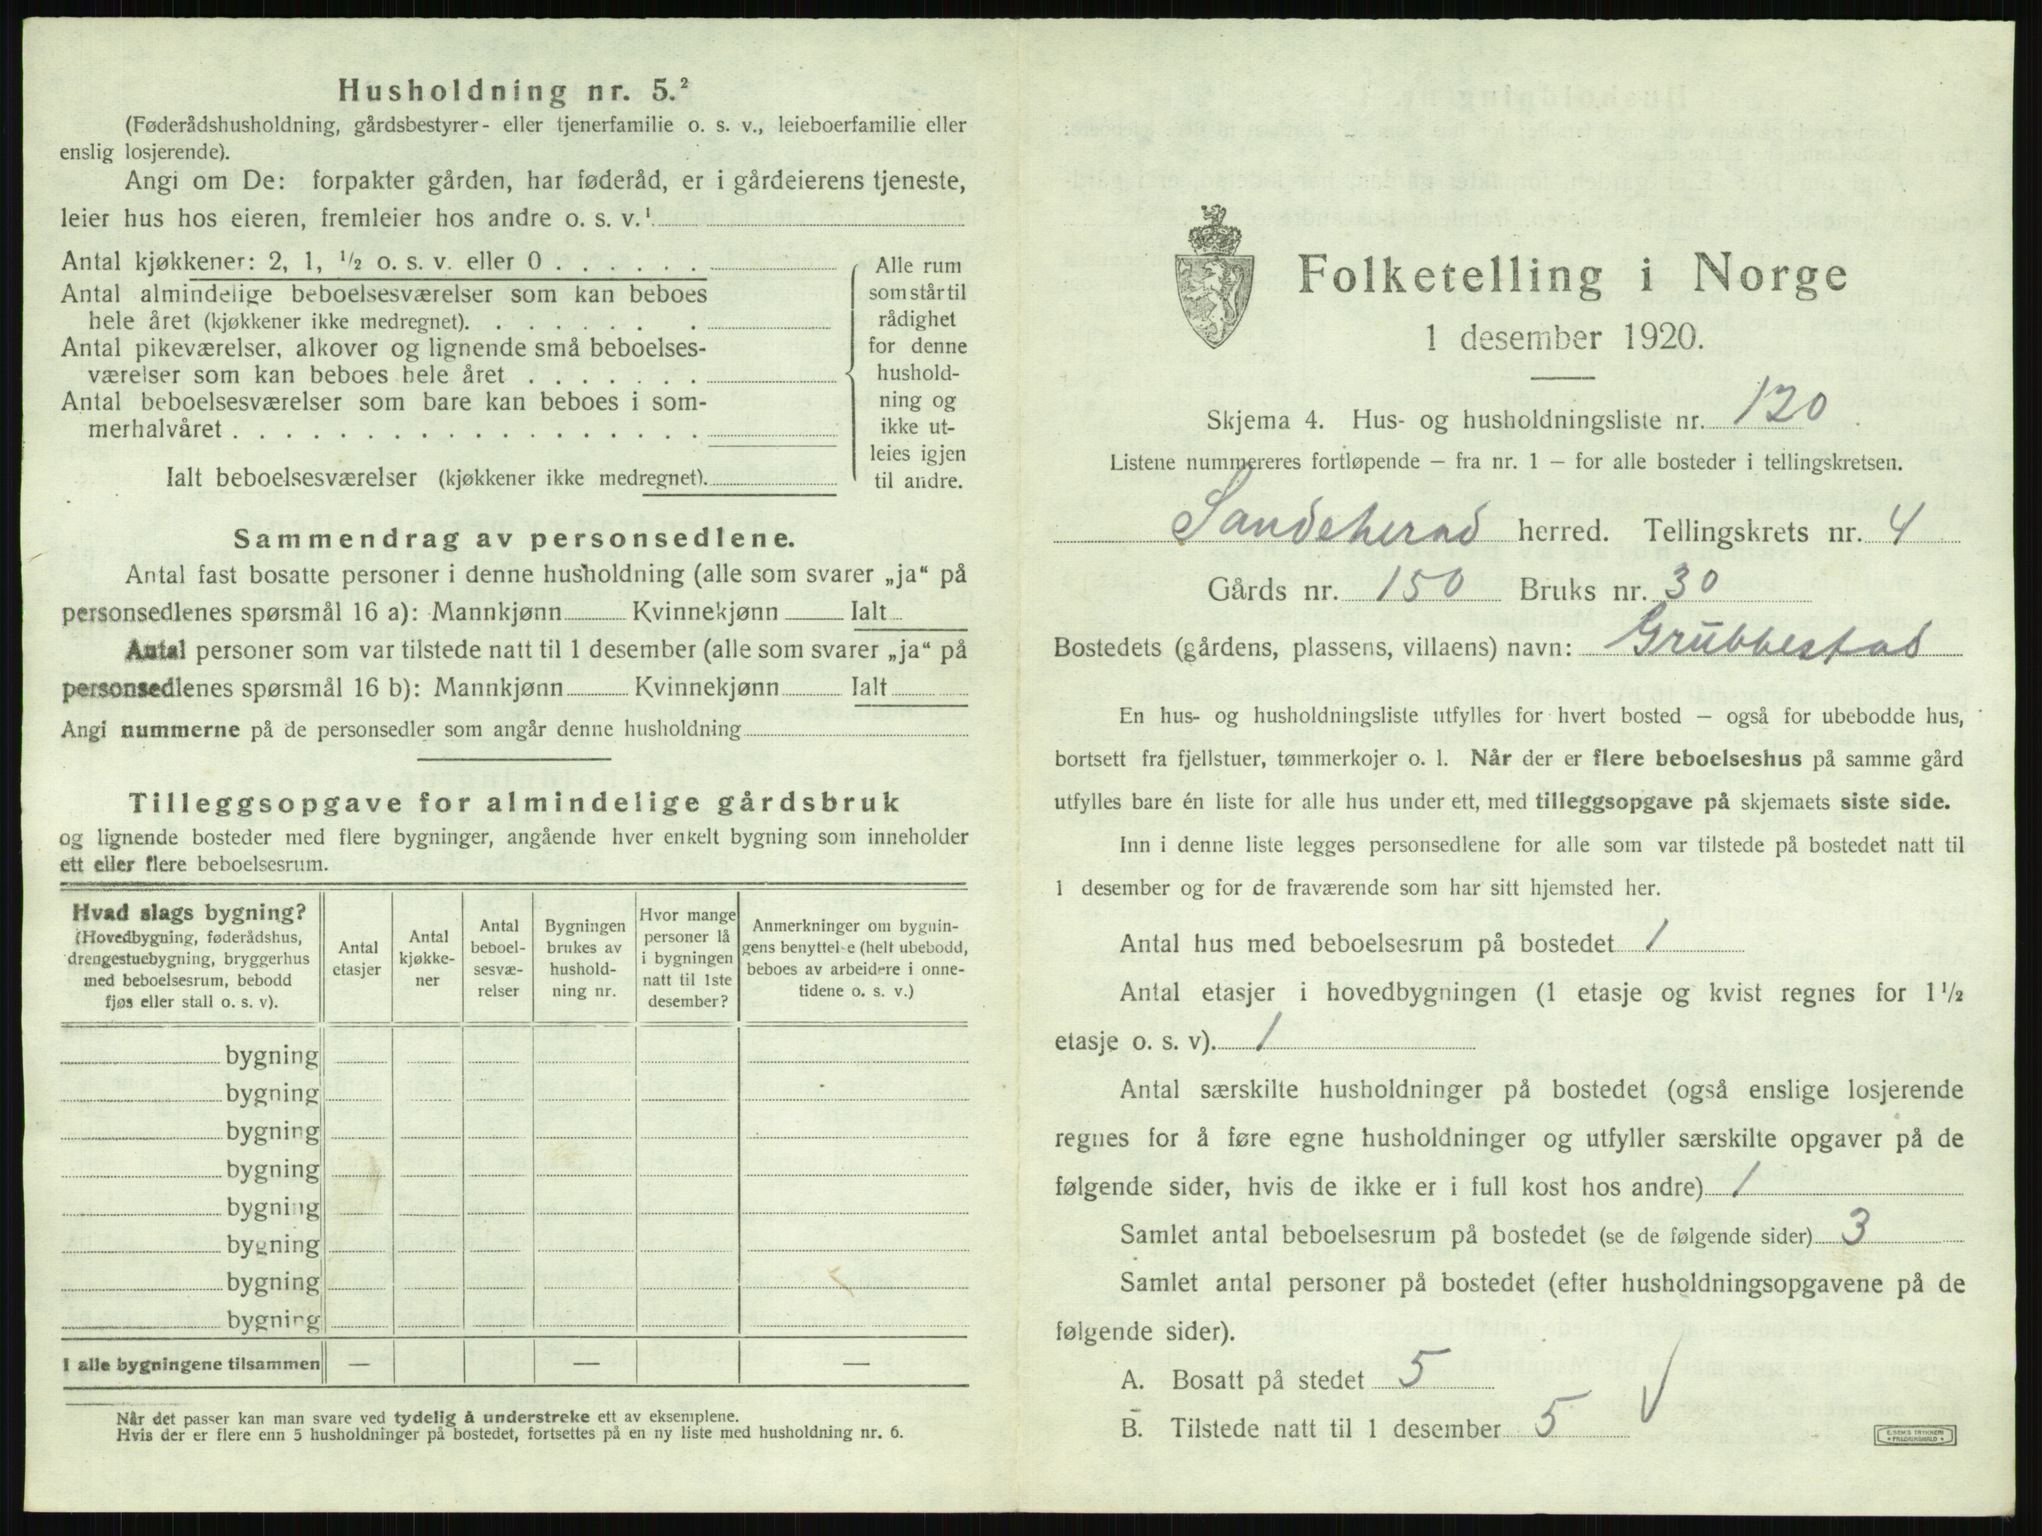 Husholdning nr. 5.²
(Føderådshusholdning, gårdsbestyrer- eller tjenerfamilie o. s. v., leieboerfamilie eller
enslig losjerende).
Angi om De: forpakter gården, har føderåd, er i gårdeierens tjeneste,
leier hus hos eieren, fremleier hos andre o. s. v.¹
Antal kjøkkener: 2, 1, ½ o. s. v. eller 0 . . . . . .
Antal almindelige beboelsesværelser som kan beboes
hele året (kjøkkener ikke medregnet). . . . . . . . .
Antal pikeværelser, alkover og lignende små beboelses-
værelser som kan beboes hele året . . . . . . .
Antal beboelsesværelser som bare kan beboes i som-
merhalvåret . . . . . . . . . . . . . . . . . .
Ialt beboelsesværelser (kjøkkener ikke medregnet).
Alle rum
som står til
rådighet
for denne
hushold-
ning og
ikke ut-
leies igjen
til andre.
Sammendrag av personsedlene.
Antal fast bosatte personer i denne husholdning (alle som svarer „ja“ på
personsedlenes spørsmål 16 a): Mannkjønn Kvinnekjønn Ialt
Antal personer som var tilstede natt til 1 desember (alle som svarer „ja“ på
personsedlenes spørsmål 16 b): Mannkjønn Kvinnekjønn Ialt
Angi nummerne på de personsedler som angår denne husholdning
Tilleggsopgave for almindelige gårdsbruk
og lignende bosteder med flere bygninger, angående hver enkelt bygning som inneholder
ett eller flere beboelsesrum.
Hvad slags bygning?
(Hovedbygning, føderådshus,
drengestuebygning, bryggerhus
med beboelsesrum, bebodd
fjøs eller stall o. s. v).
Antal
etasjer
Antal
kjøkke-
ner
Antal
beboel-
sesvæ-
relser
Bygningen
brukes av
hushold-
ning nr.
Hvor mange
personer lå
i bygningen
natt til 1ste
desember?
Anmerkninger om bygnin-
gens benyttelse (helt ubebodd,
beboes av arbeidere i onne-
tidene o. s. v.)
bygning
bygning
bygning
bygning
bygning
bygning
bygning
bygning
I alle bygningene tilsammen — — —
Når det passer kan man svare ved tydelig å understreke ett av eksemplene.
Hvis der er flere enn 5 husholdninger på bostedet, fortsettes på en ny liste med husholdning nr. 6.
Folketelling i Norge
1 desember 1920.
Skjema 4. Hus- og husholdningsliste nr. 120
Listene nummereres fortløpende – fra nr. 1 – for alle bosteder i tellingskretsen.
Sandeherad herred. Tellingskrets nr. 4
Gårds nr. 150 Bruks nr. 30
Bostedets (gårdens, plassens, villaens) navn: Grubbestad
En hus- og husholdningsliste utfylles for hvert bosted – også for ubebodde hus,
bortsett fra fjellstuer, tømmerkojer o. l. Når der er flere beboelseshus på samme gård
utfylles bare én liste for alle hus under ett, med tilleggsopgave på skjemaets siste side.
Inn i denne liste legges personsedlene for alle som var tilstede på bostedet natt til
1 desember og for de fraværende som har sitt hjemsted her.
Antal hus med beboelsesrum på bostedet 1
Antal etasjer i hovedbygningen (1 etasje og kvist regnes for 1½
etasje o. s. v). 1
Antal særskilte husholdninger på bostedet (også enslige losjerende
regnes for å føre egne husholdninger og utfyller særskilte opgaver på de
følgende sider, hvis de ikke er i full kost hos andre) 1
Samlet antal beboelsesrum på bostedet (se de følgende sider) 3
Samlet antal personer på bostedet (efter husholdningsopgavene på de
følgende sider).
A. Bosatt på stedet 5
B. Tilstede natt til 1 desember 5